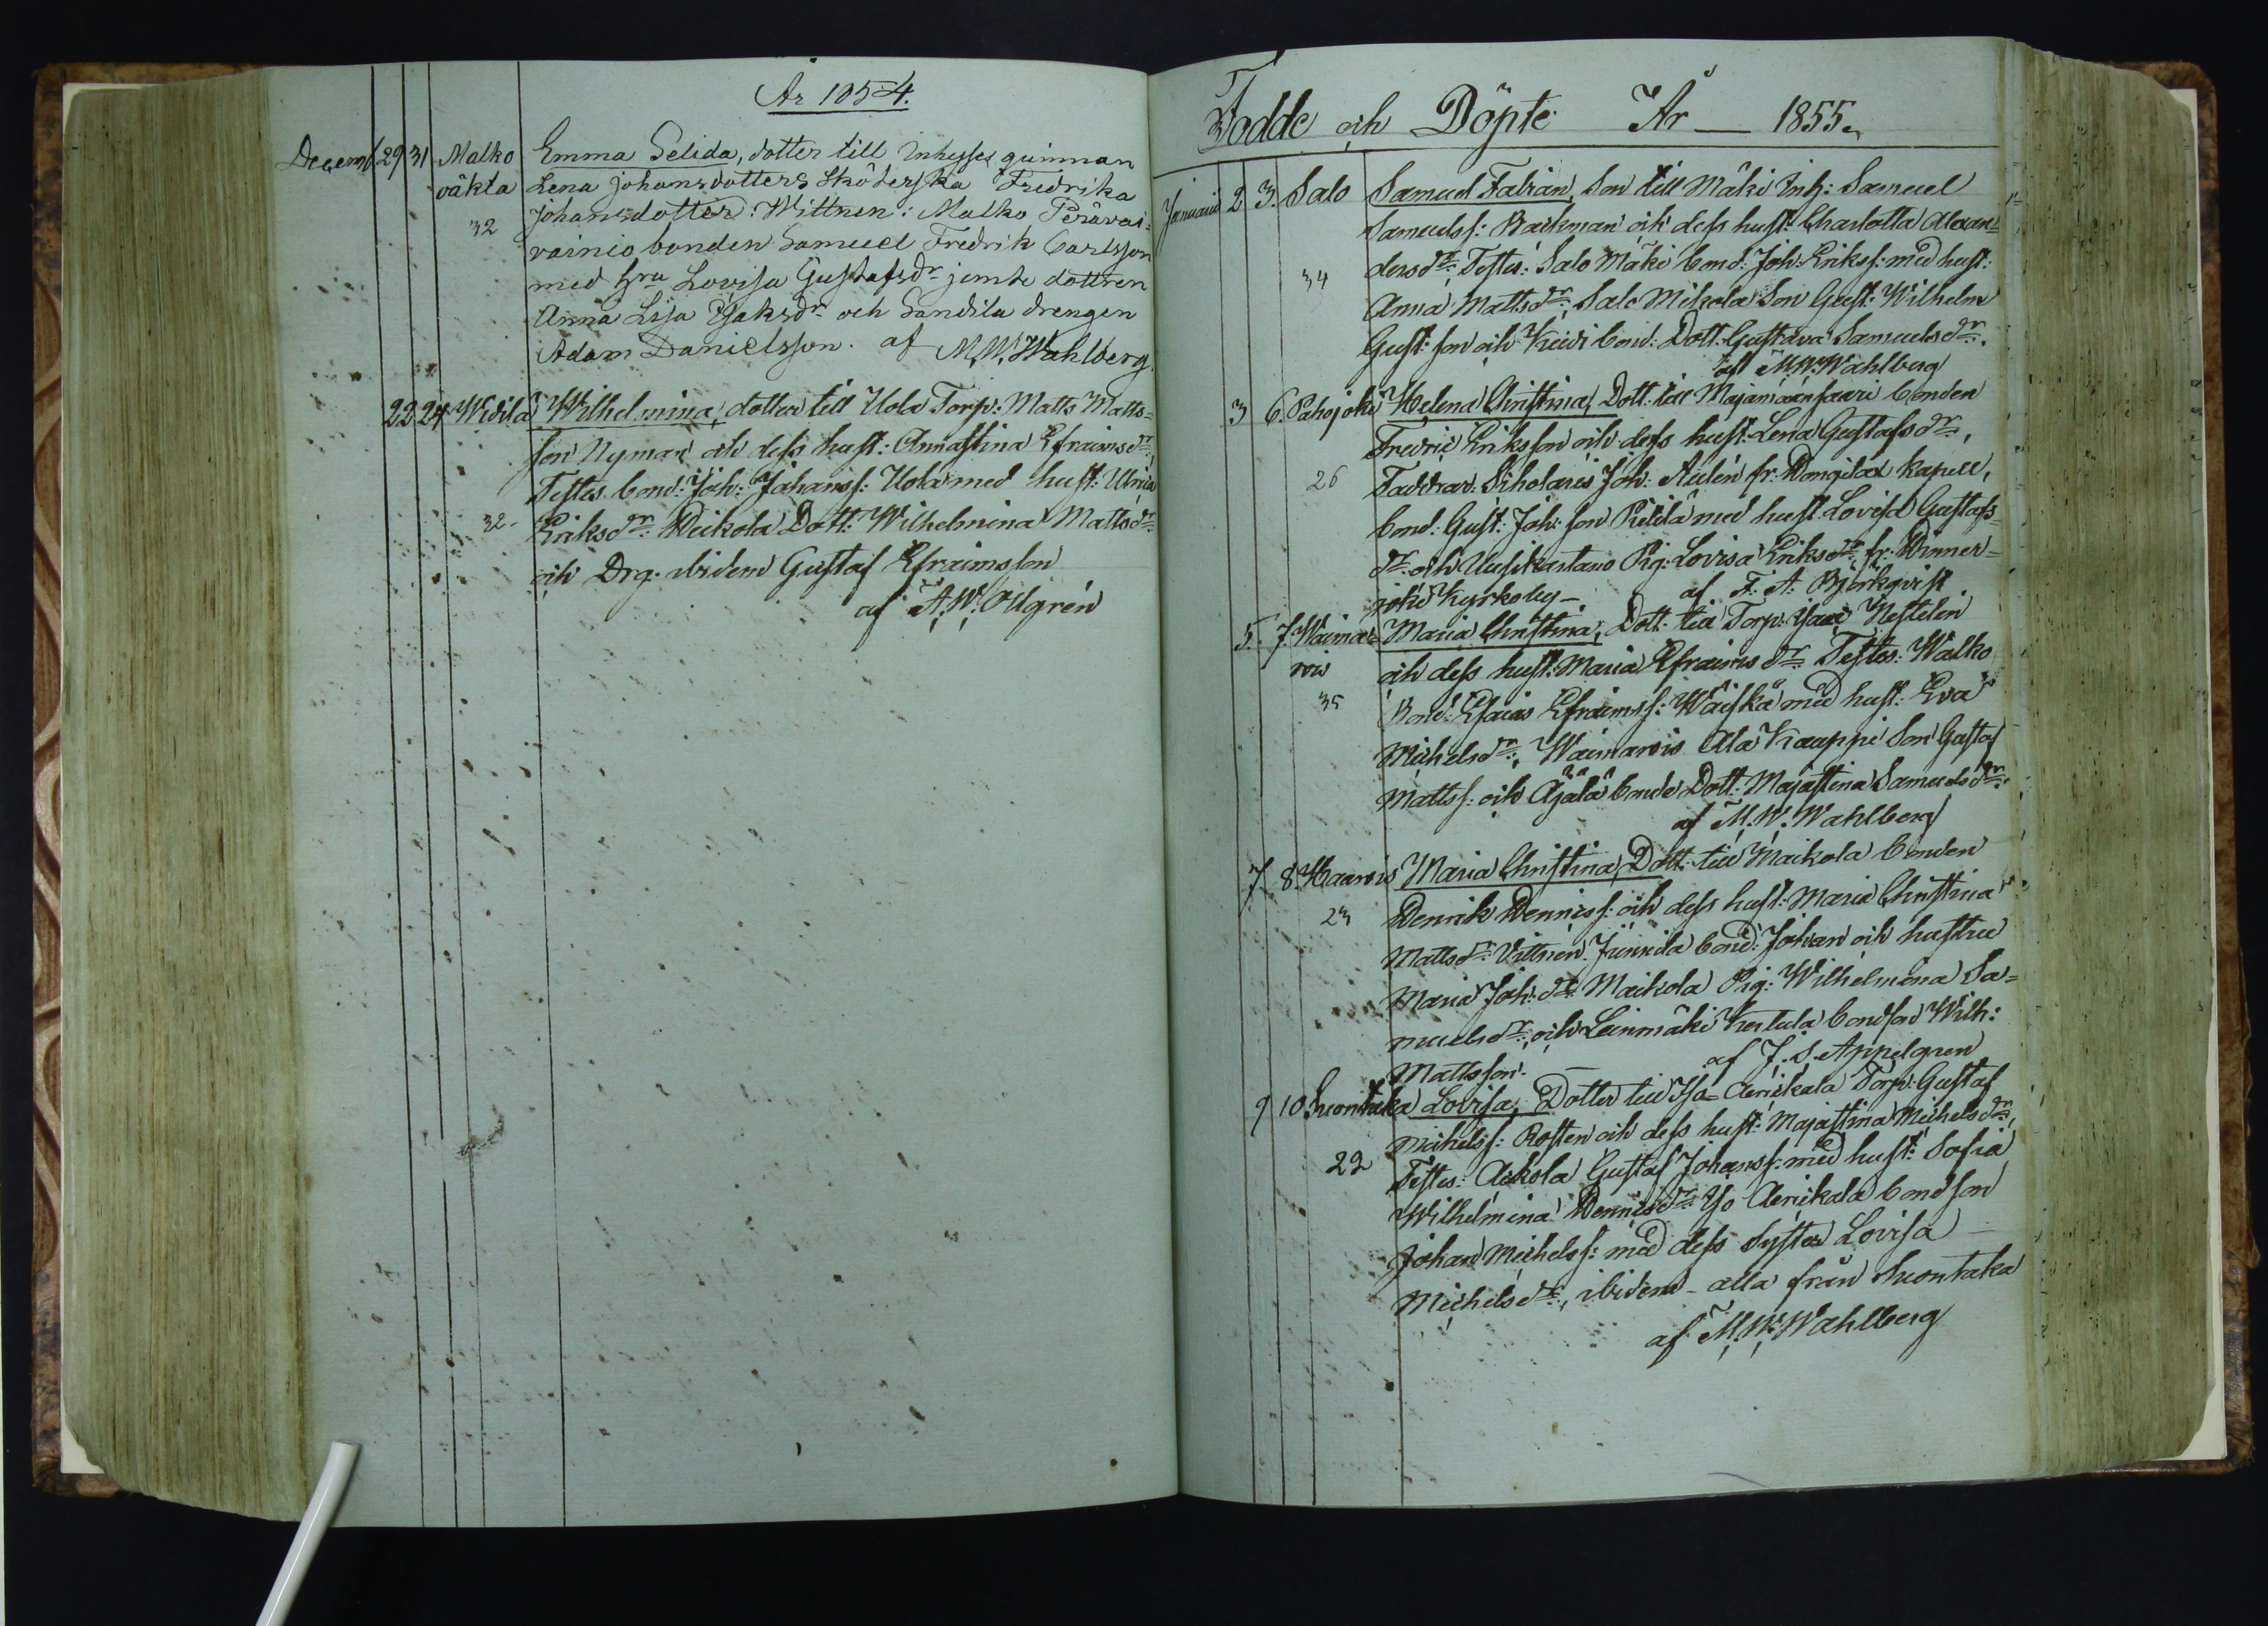 År 1854.
Decemb 29 31 Malko Emma Selida, dotter till Inhysses quinnan
väkla Lena Johansdotters Sköterska Fredrika
32 Johansdotter: Wittnen: Malko Perävai-
vainio bonden Samuel Fredrik Carlsson
med hru Lovisa Gustafsdr jemte dottren
Anna Lisa Isaksdr och Sandila drengen
Adam Danielsson. af M. W. Wahlberg
22 24 Widilä Wilhelmina, dotter till Uola Torp: Matts Matts=
son Nyman och dess hust: Annastina Efraimsdr
Testes bond: Joh: Johanss: Uola med hust: Ulrica
32. Eriksdr Weikola Dott: Wilhelmina Mattsdr
och Drg. ibidem Gustaf Efraimsson
af A. W. Ollgrén
Födde och Döpte År — 1855.
Januarii 2 3. Salo Samuel Fabian, Son till Mäki Inh: Samuel
Samuelss: Backman och dess hust: Charlotta Alexan=
34 dersdr. Testes: Salo Mäki bond: Joh: Erikss: med hust:
Anna Mattsdr, Salo Mikola Son Gust: Wilhelm
Gust: son och Kiedi bond: Dott. Gustava Samuelsdr.
af M. W. Wahlberg
3 6. Pahojoki Helena Christina, Dott. till Majamaansaari bonden
Fredric Eriksson och dess hust: Lena Gustafsdr,
26 Faddrar: Scholaris Joh: Aulén fr: Hongilax Kapell,
bond: Gust: Joh: son Pietilä med hust Lovisa Gustafs=
dr och Uusikartano Pig: Lovisa Eriksdr, fr: Winner=
joki Kyrkoby — af F. A. Björkqvist
5. 7. Waima= Maria Christina, Dott. till Torp: Isaac Nestelin
ros och dess hust: Maria Efraimsdr Testes: Walko
35 Bond: Esaias Efraimss: Wäiskä med hust: Eva
Michelsdr, Waimaros Ala Kauppi Son Gustaf
Mattss: och Äjälä bonde Dott: Majastina Samuelsdr.
af M. W. Wahlberg
7 8. Haarois Maria Christina, Dott: till Maikola bonden
23 Henrik Henrics: och dess hust: Maria Christina
Mattsdr. Vittnen: Junnila bond: Johan och hustru
Maria Joh:dr Maikola Pig: Wilhelmina Sa=
muelsdr, och Leinmäki Kertula bondson Wilh:
Mattsson. — af J. S. Appelgren
9 10 Suontaka Lovisa, Dotter till Iso-Äenickala Torp: Gustaf
Michelss: Rosten och dess hust: Majastina Michelsdr,
22 Testes: Aickola Gustaf Johanss: med hust: Sofia
Wilhelmina Henricsdr Iso Äenickala bondson
Johan Michelss: med dess syster Lovisa
Michelsdr, ibidem — alla från Suontaka
af M. W. Wahlberg